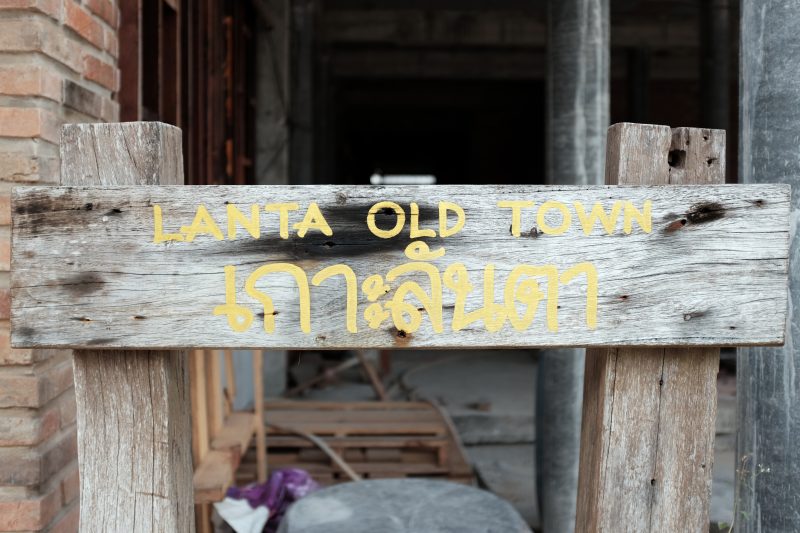 LANTA OLD TOWN
เกาะลันตา